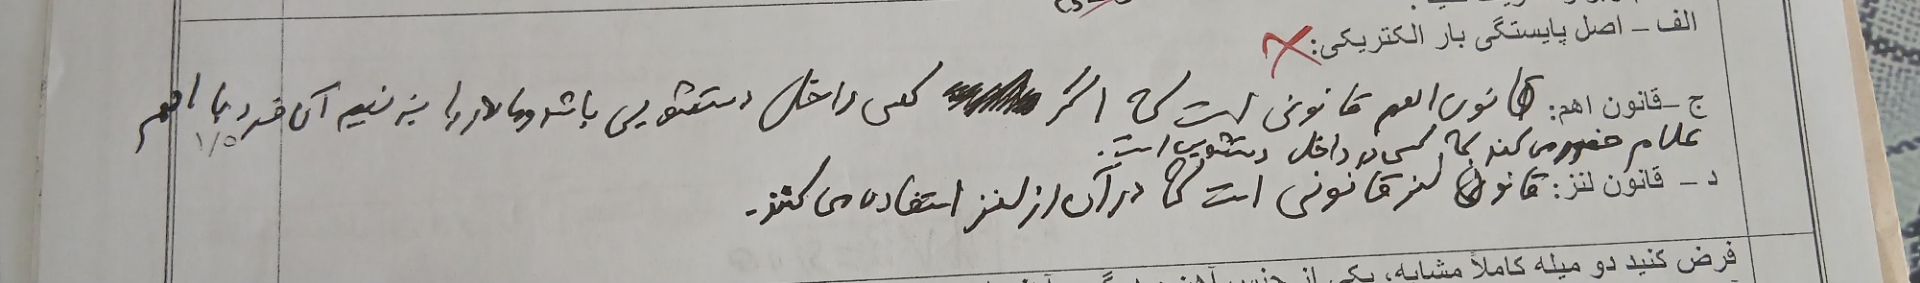 الف – اصل پایستگی بار الکتریکی:
ج – قانون اهم: قانون اهم قانونی است که اگر کسی داخل دستشویی باشد و ما در را بزنیم آن فرد با اهم
۱/۵
اعلام حضور می کند که کسی در داخل دستشویی است.
د – قانون لنز: قانون لنز قانونی است که در آن از لنز استفاده می کنند.
فرض کنید دو میله کاملاً مشابه، یکی از جنس آهن و